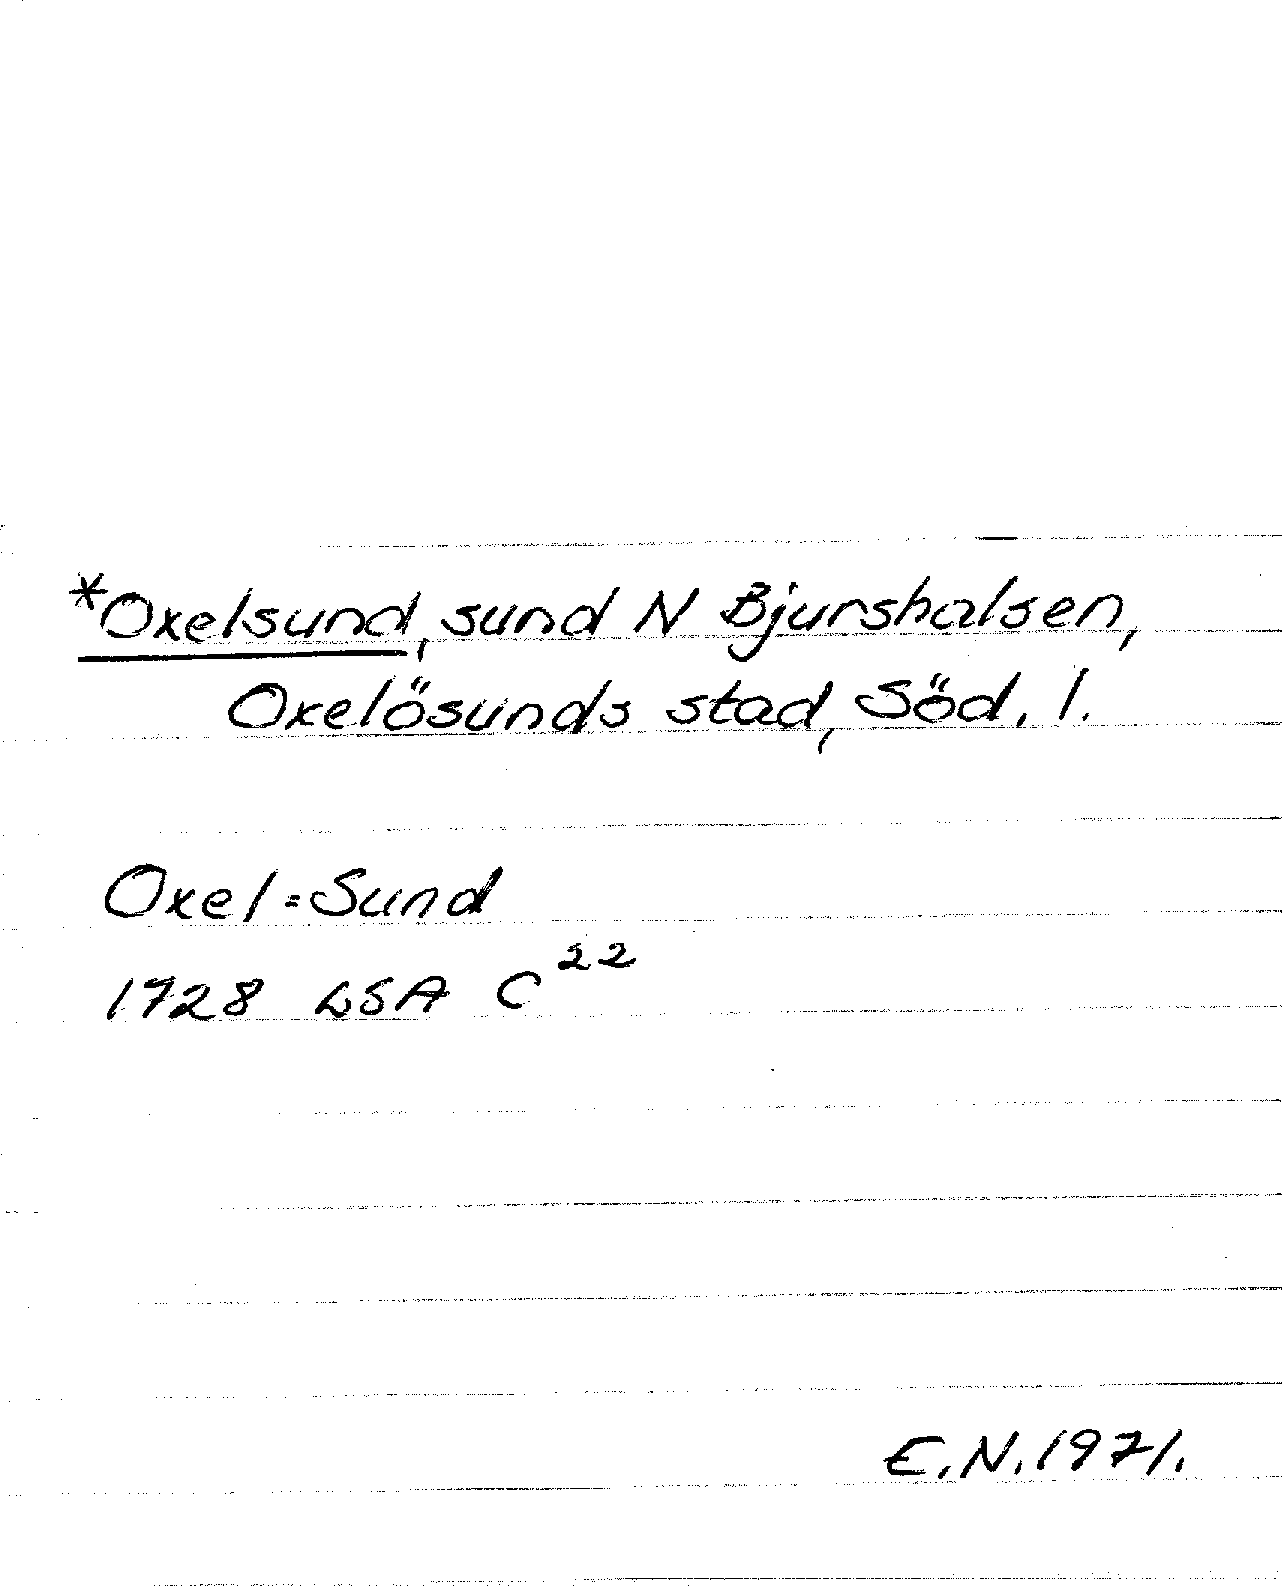 *Oxelsund, sund N Bjurshalsen,
Oxelösunds stad, Söd. l.
Oxel=Sund
1728 LSA C²²
E.N. 1971.